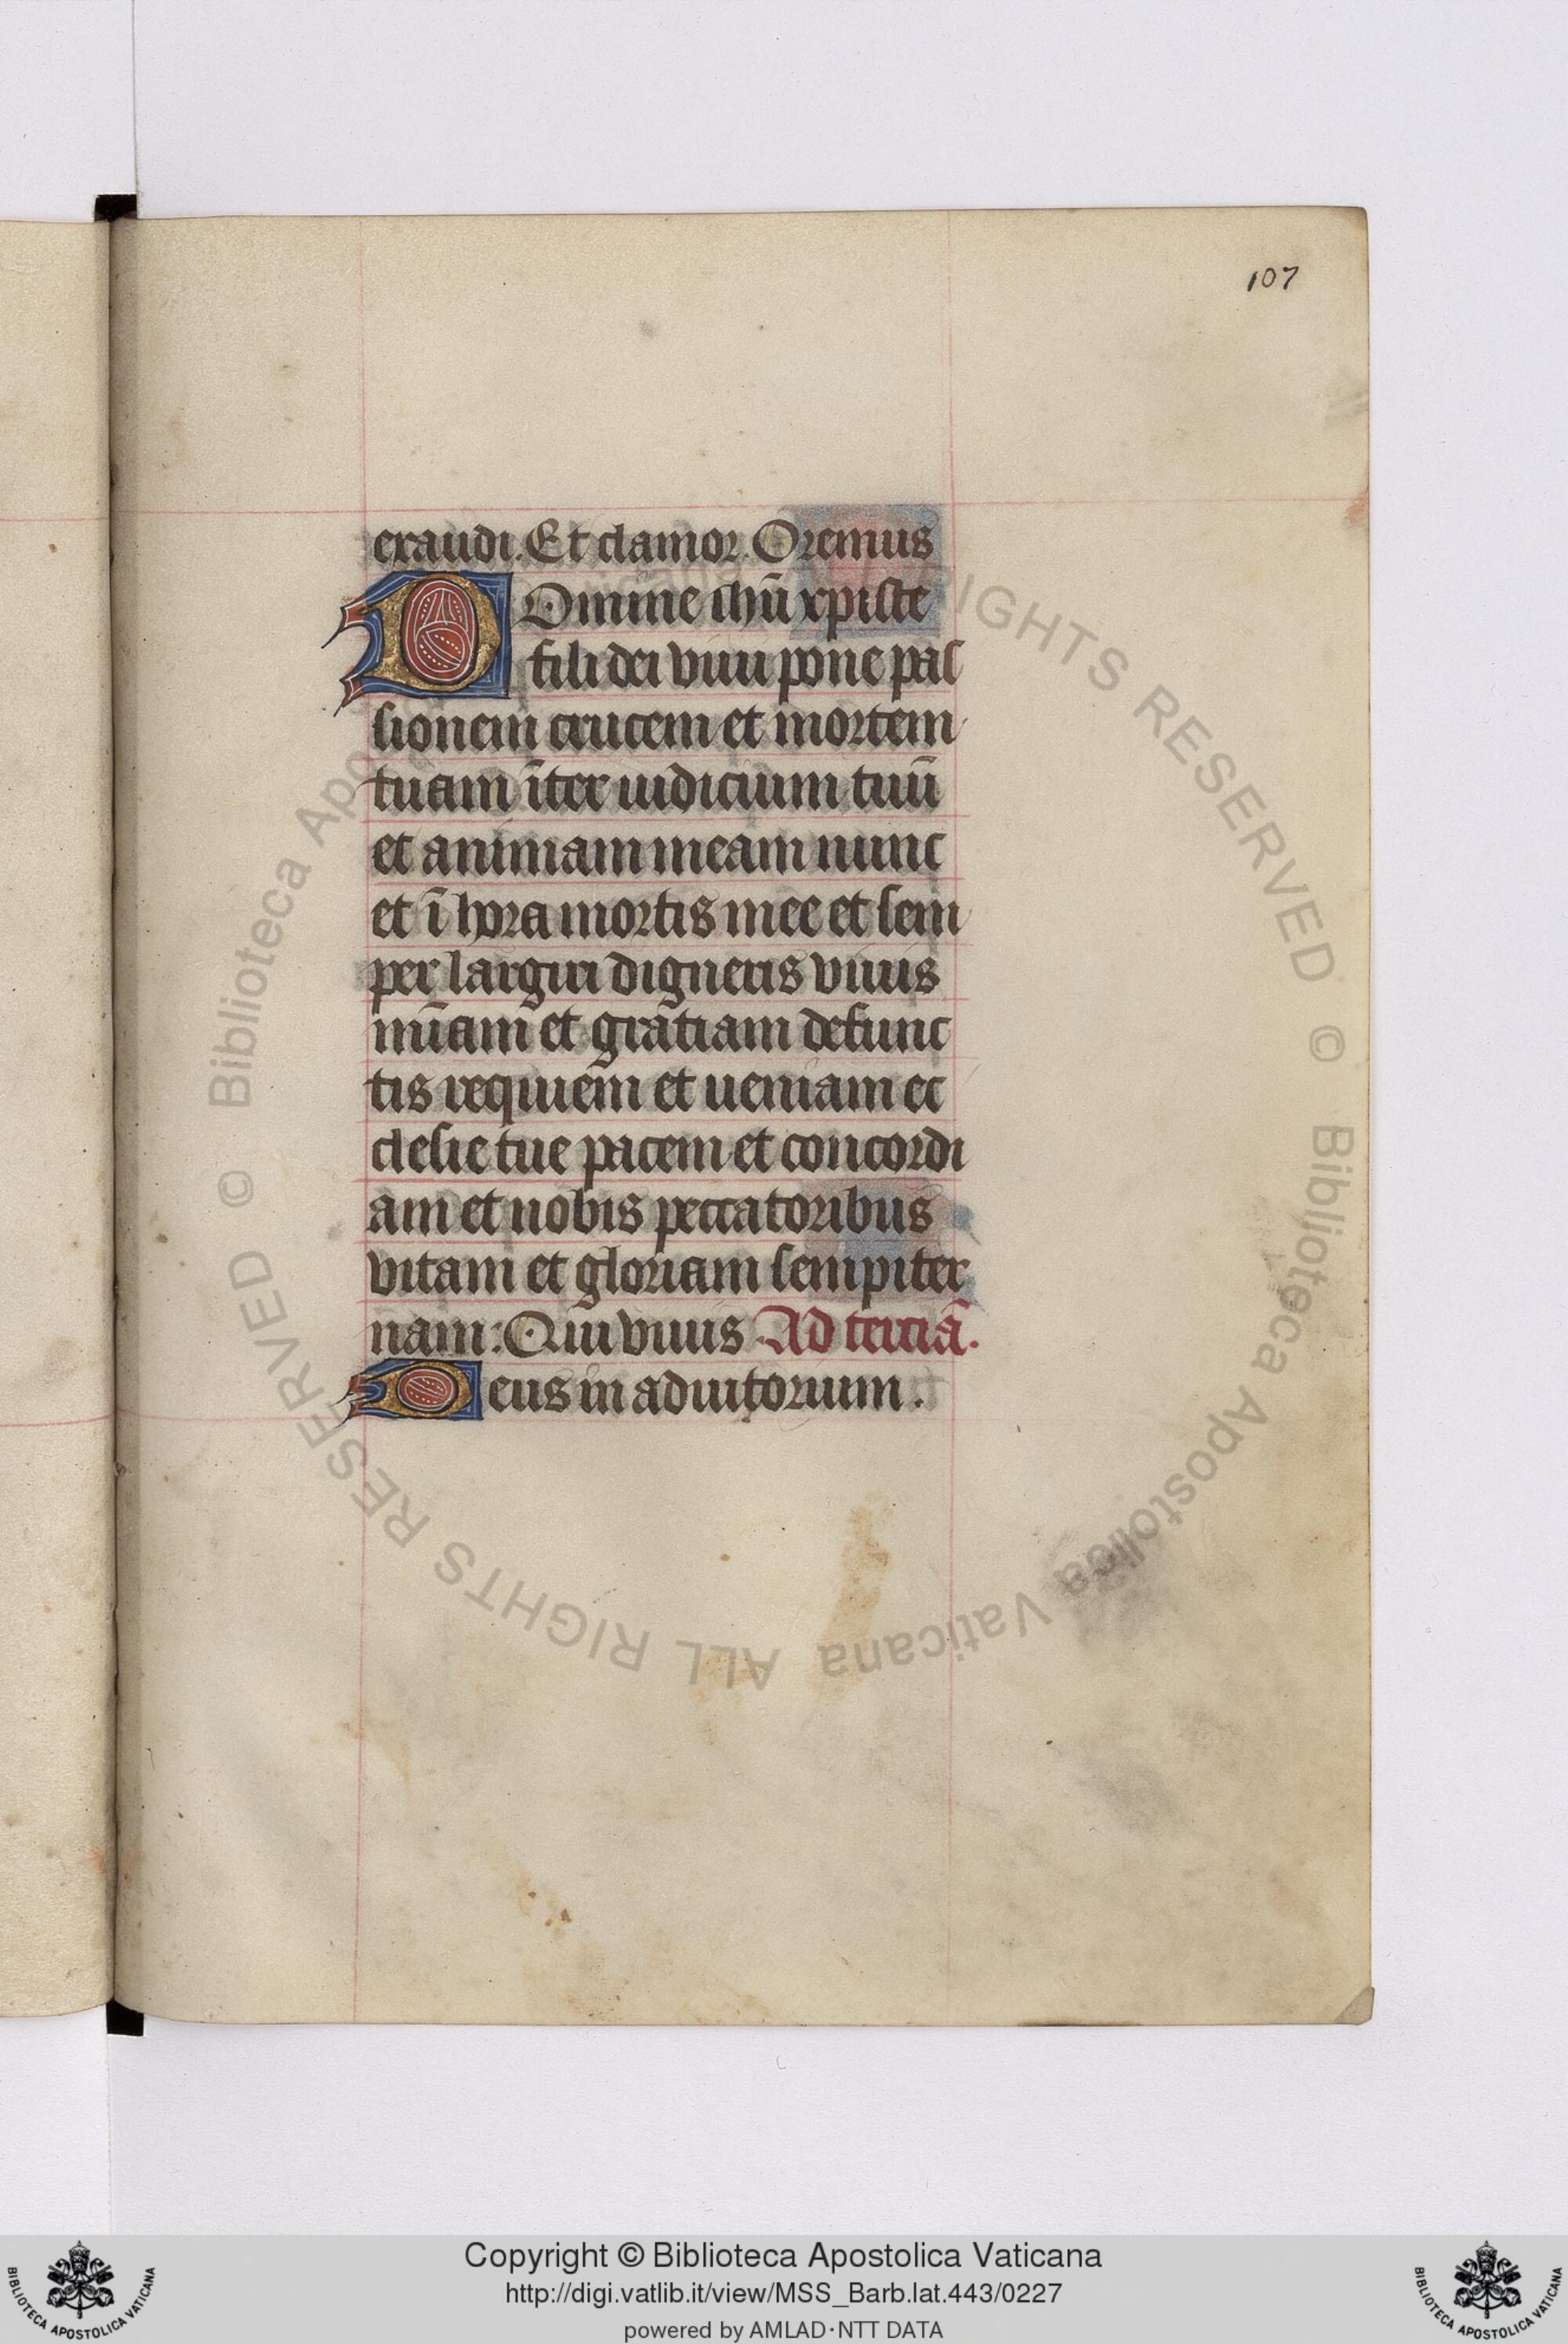 107
exaudi. Et clamor. Oremus
DOmine ihũ xpiste
fili dei viui pone pas
sionem crucem et mortem
tuam ĩter iudicium tuũ
et animam meam nunc
et ĩ hora mortis mee et sem
per largiri digneris viuis
mĩam et gratiam defunc
tis requiem et ueniam ec
clesie tue pacem et concordi
am et nobis peccatoribus
vitam et gloriam sempiter
nam: Qui viuis Ad terciã.
Deus in adiutorium.
© Biblioteca Apostolica Vaticana ALL RIGHTS RESERVED © Biblioteca Apostolica Vaticana ALL RIGHTS RESERVED
Copyright © Biblioteca Apostolica Vaticana
http://digi.vatlib.it/view/MSS_Barb.lat.443/0227
powered by AMLAD·NTT DATA
BIBLIOTECA APOSTOLICA VATICANA
BIBLIOTECA APOSTOLICA VATICANA